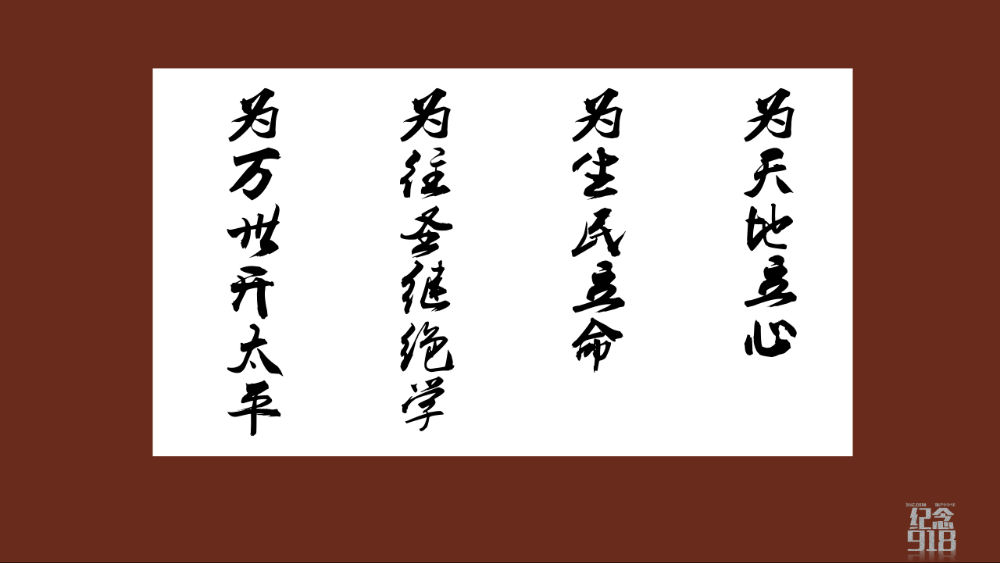 为天地立心
为生民立命
为往圣继绝学
为万世开太平
纪念
918